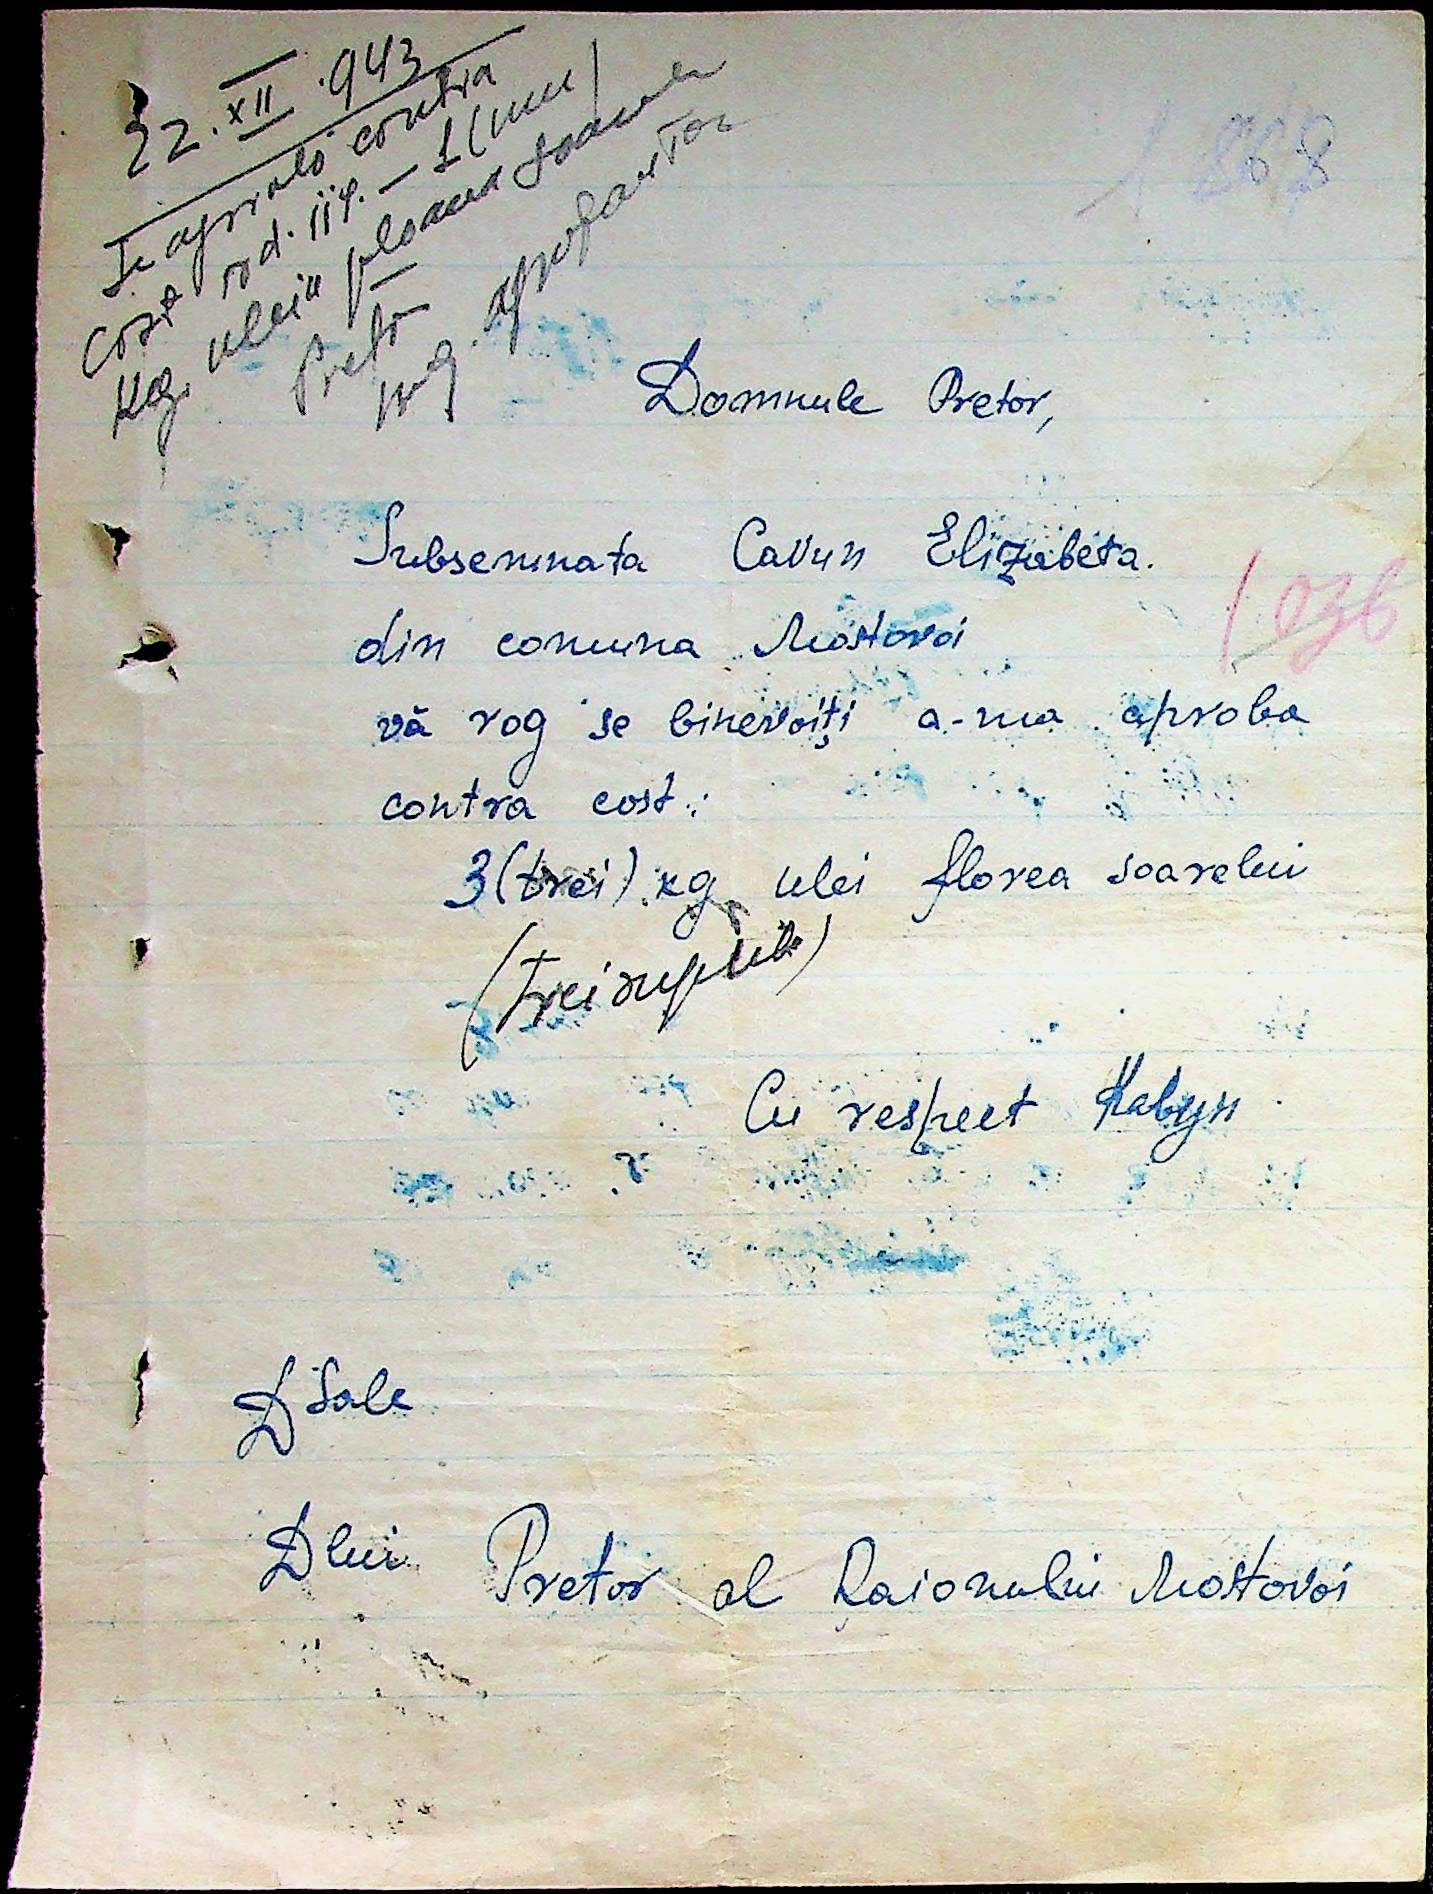 22.XII.943
Se aprobă contra
cost 1(unu)
kg. ulei floarea soarelui
Pretor
1868
Domnule Pretor,
Subsemnata Cavun Elizabeta.
din comuna Mostovoi
1036
vă rog se binevoiți a-ma aproba
contra cost:
3(trei) kg ulei florea soarelui
Cu respect Kabyn
D Sale
Dlui Pretor al Raionului Mostovoi